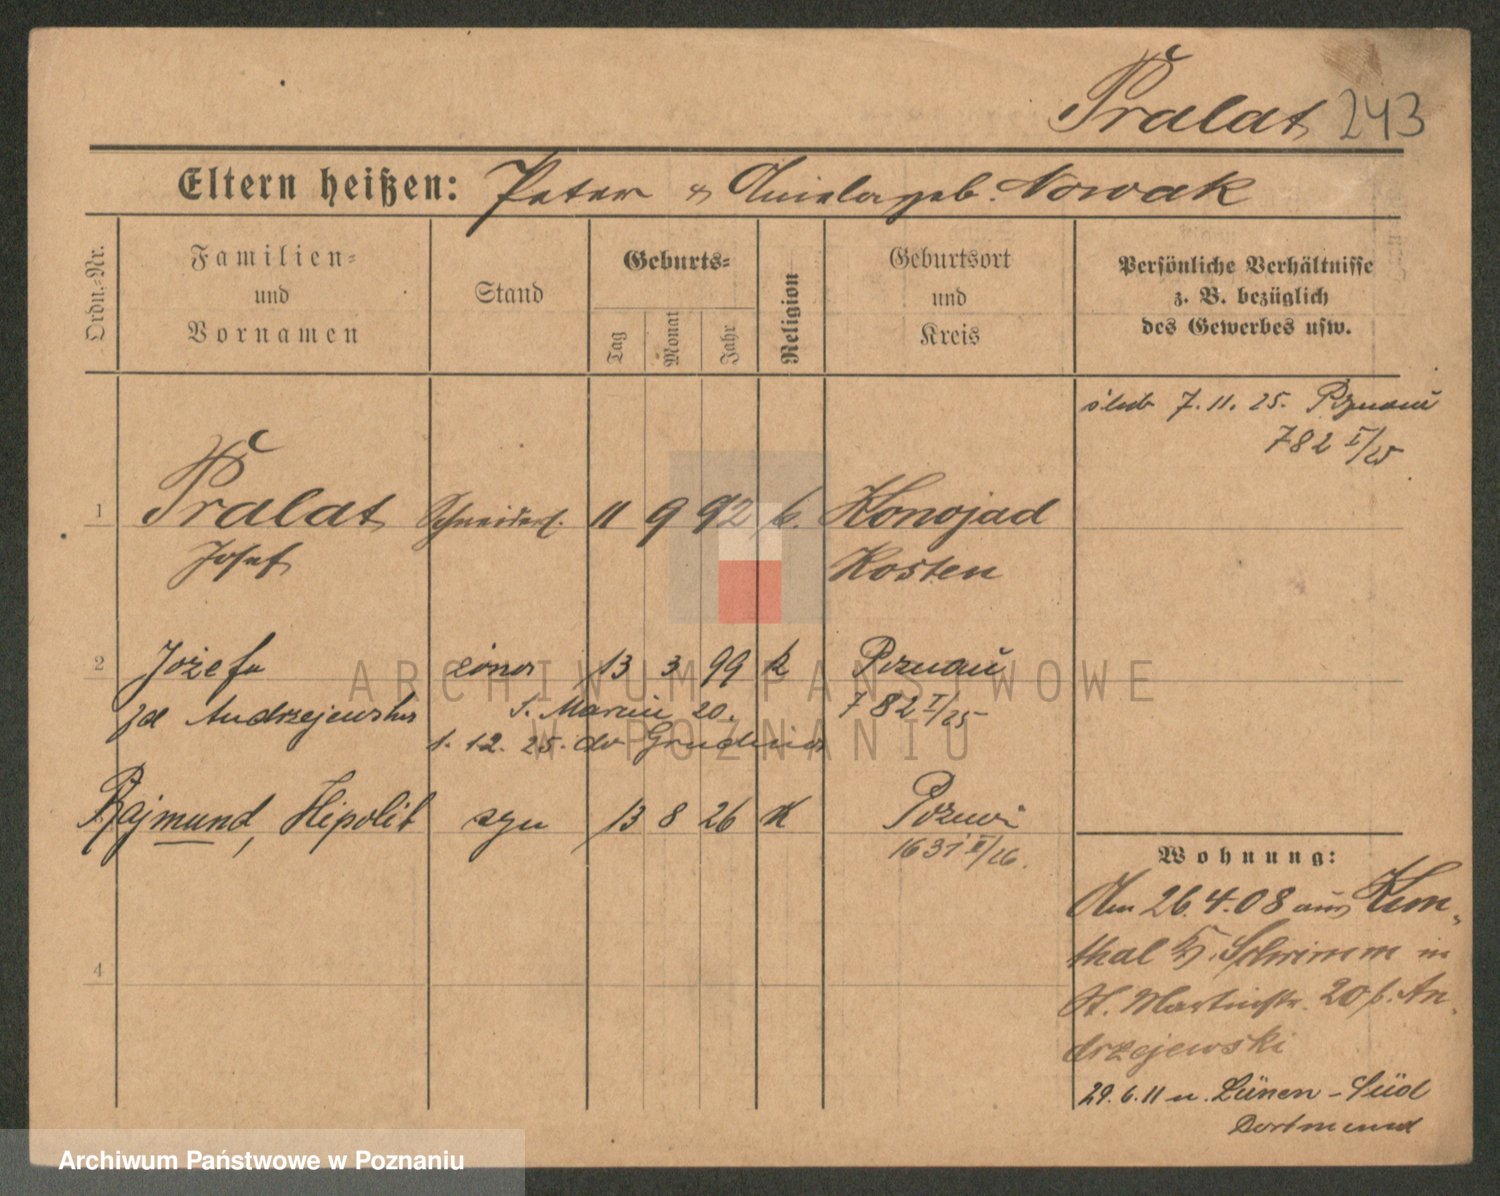 Pralat 243
Eltern heißen: Peter & geb. Nowak
Ordn.-Nr.
Familien- und Vornamen
Stand
Geburts-
Tag
Monat
Jahr
Religion
Geburtsort und Kreis
Persönliche Verhältnisse z. B. bezüglich des Gewerbes usw.
ślub 7.11.25. Poznań
782 I/25
1 Pralat Schneiderl. 11 9 92 k. Konojad
Josef Kosten
2 Józefa żona 13 3 99 k Poznań
zd Andrzejewska Ś. Marcin 20. 782 I/25
1.12.25. do Grudnia
Rajmund, Hipolit syn 13 8 26 K Poznań
1631 II/26.
4
Wohnung:
Am 26.4.08 aus Kem-
thal Kr. Schrimm in
St. Martinstr. 20 b. An-
drzejewski
29.6.11 n. Lünen-Süd
Dortmund
ARCHIWUM PAŃSTWOWE
W POZNANIU
Archiwum Państwowe w Poznaniu